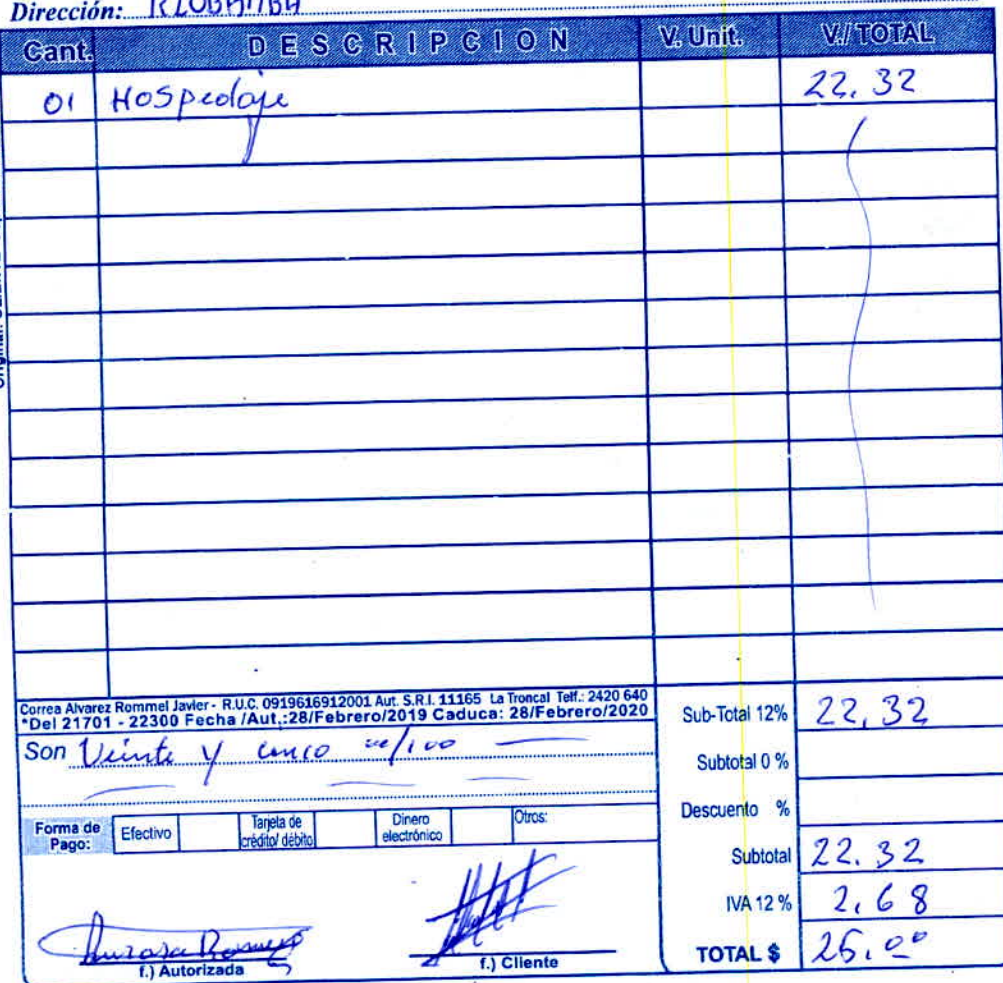 Dirección: RIOBAMBA
Cant. DESCRIPCION V. Unit. V./TOTAL
01 Hospedaje 22.32
Correa Alvarez Rommel Javier - R.U.C. 0919616912001 Aut. S.R.I. 11165 La Troncal Telf.: 2420 640
*Del 21701 - 22300 Fecha /Aut.:28/Febrero/2019 Caduca: 28/Febrero/2020
Son Veinte y cinco 00/100
Forma de Pago: Efectivo Tarjeta de crédito/ débito Dinero electrónico Otros:
f.) Autorizada f.) Cliente
Sub-Total 12% 22,32
Subtotal 0 %
Descuento %
Subtotal 22.32
IVA 12 % 2,68
TOTAL $ 25,00